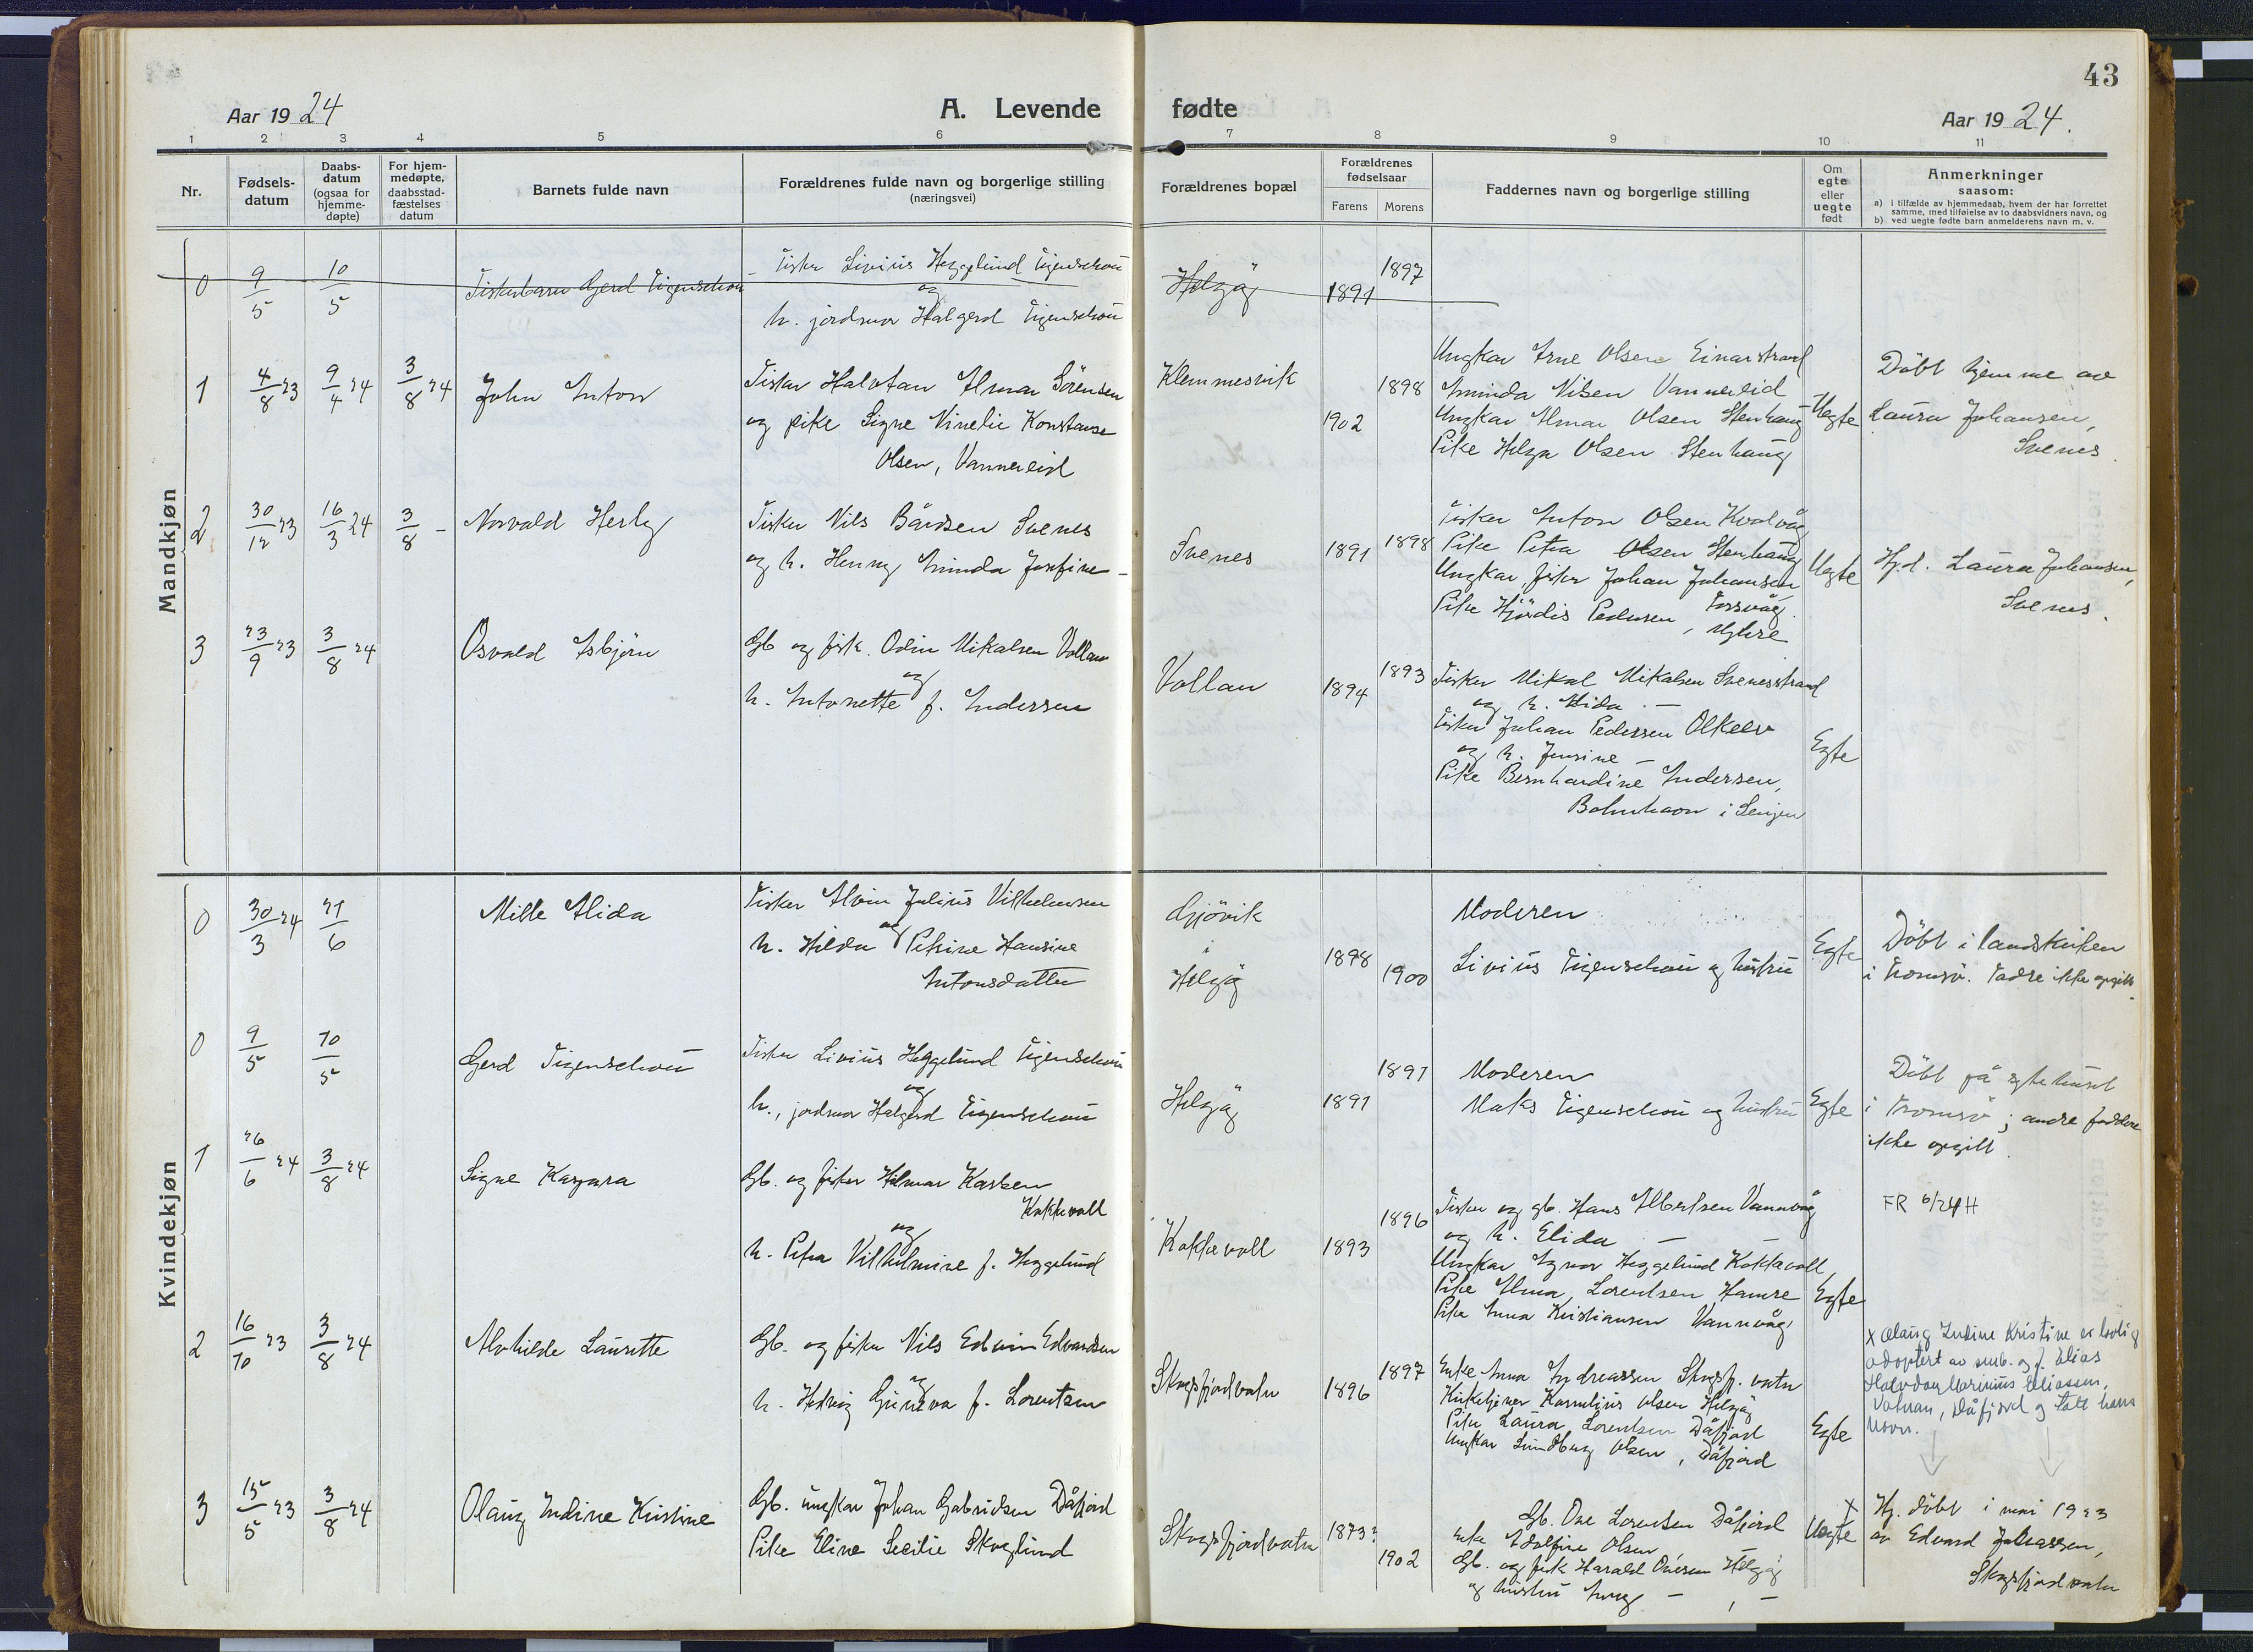 43
Aar 1924
A. Levende fødte
Aar 1924.
1 2 3 4 5 6 7 8 9 10 11
Nr.
Fødsels-
datum
Daabs-
datum
(ogsaa for
hjemme-
døpte)
For hjem-
medøpte,
daabsstad-
fæstelses
datum
Barnets fulde navn
Forældrenes fulde navn og borgerlige stilling
(næringsvei)
Forældrenes bopæl
Forældrenes
fødselsaar
Farens Morens
Faddernes navn og borgerlige stilling
Om
egte
eller
uegte
født
Anmerkninger
saasom:
a) i tilfælde av hjemmedaab, hvem der har forrettet
samme, med tilføielse av to daabsvidners navn, og
b) ved uegte fødte barn anmelderens navn m. v.
Mandkjøn
0 9/5 10/5 Fiskerbarn Gerd Figenschou
Fisker Livius Heggelund Figenschou
og
h. jordmor Halgerd Figenschou
Helgøy 1891 1897
1 4/8 23 9/4 24 3/8 24 John Anton
Fisker Halvtan Almar Sörensen
og pike Signe Vinelie Konstanse
Olsen, Vannereid
Klemmesvik 1902 1898
Ungkar Arne Olsen Einarstrand
Aminda Nilsen Vannereid
Ungkar Almar Olsen Stenhaug
Pike Helga Olsen Stenhaug
Uegte
Döbt hjemme av
Laura Johansen,
Svenes.
2 30/12 23 16/3 24 3/8 - Norvald Herly
Fisker Nils Bårdsen Svenes
og h. Henny Aminda Josefine -
Svenes 1891 1898
Fisker Anton Olsen Kvalvåg
Pike Petra Olsen Stenhaug
Ungkar fisker Johan Johansen
Torsvåg.
Pike Hjördis Pedersen, Myhre
Uegte
Hj.d. Laura Johansen,
Svenes.
3 23/9 23 3/8 24 Osvald Asbjörn
Gb og fisk. Odin Mikalsen Vollan
og
h. Antonette f. Andersen
Vollan 1894 1893
Fisker Mikal Mikalsen Svenesstrand
og h. Alida -
Fisker Johan Pedersen Olkeelv
og h. Jensine -
Pike Bernhardine Andersen,
i Senjen
Egte
Kvindekjøn
0 30/3 24 21/6 Mille Alida
Fisker Alvin Julius Vilhelmsen
og
h. Hilda Petrine Hansine
Antonsdatter
Gjövik
i
Helgöy
1898 1900
Moderen
Livius Figenschou og hustru
Egte
Döbt i landskirken
i Tromsö. Fadre ikke opgitt.
0 9/5 10/5 Gerd Figenschou
Fisker Livius Heggelund Figenschou
og
h., jordmor Halgerd Figenschou
Helgöy 1891 1897
Moderen
Maks Figenschou og hustru
Egte
Döbt på sykehuset
i Tromsö; andre faddere
ikke opgitt.
1 26/6 24 3/8 24 Signe Kaspara
Gb. og fisker Hilmar Karlsen
Kokkevoll
og
h. Petra Vilhelmine f. Heggelund
Kokkevoll 1893 1896
Fisker og gb. Hans Albertsen Vannvåg
og h. Elida -
Ungkar Agnar Heggelund Kokkevoll
Pike Alma Lorentsen Hamre
Pike Anna Kristiansen Vannvåg
Egte
FR 6/24 H
2 16/10 23 3/8 24 Alvhilde Laurette
Gb. og fisker Nils Edvin Edvardsen
og
h. Hedvig Guneva f. Lorentsen
Skogsfjordvatn 1896 1897
Enke Anna Andreassen Skogsfj. vatn
Kirketjener Kornelius Olsen Helgöy
Pike Laura Lorentsen Dåfjord
Ungkar Lindberg Olsen, Dåfjord
Egte
x Olaug Indine Kristine er lovlig
adoptert av småb. og f. Elias
Halvdan Marinius Eliassen,
Vatnan, Dåfjord og tatt hans
navn.
3 15/5 23 3/8 24 Olaug Indine Kristine
Gb. ungkar Johan Gabrielsen Dåfjord
Pike Eline Secilie Skoglund
Skogsfjordvatn 1873? 1902
Gb. Ove Lorentsen Dåfjord
Enke Adolfine Olsen -
Gb. og fisk Harald Ovesen Helgöy
og hustru - , -
x
Uegte
Hj. döbt i mai 1923
av Edvard Johansen,
Skogsfjordvatn